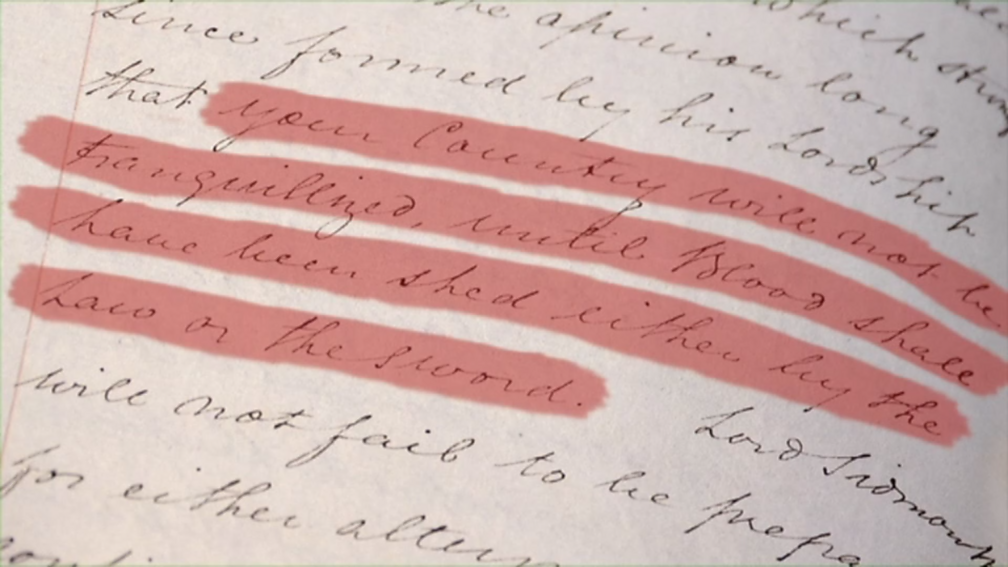 the opinion long
since formed by his Lordship
that your Country will not be
tranquillized, until Blood shall
have been shed either by the
Law or the sword. Lord Sidmouth
will not fail to be prepa
for either altern